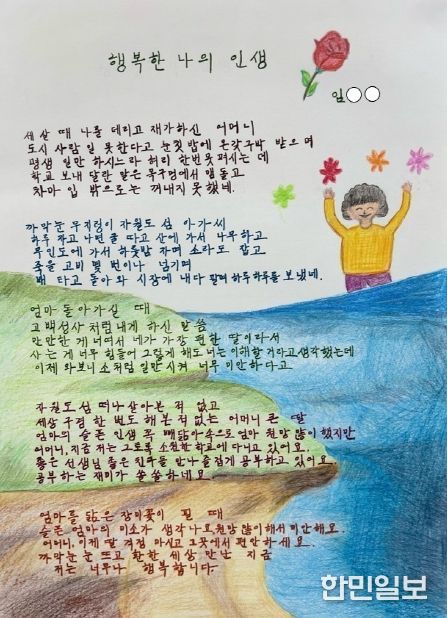 행복한 나의 인생
임○○
세살 때 나를 데리고 재가하신 어머니
도시 사람 일 못한다고 눈칫밥에 온갖구박 받으며
평생 일만 하시느라 허리 한번 못펴시는 데
학교 보내 달란 말은 목구멍에서 맴돌고
차마 입 밖으로는 꺼내지 못했네.
까막눈 무지렁이 자월도 섬 아가씨
하루 자고 나면 굴 따고 산에 가서 나무하고
무인도에 가서 하룻밤 자며 소라도 잡고
죽을 고비 몇 번이나 넘기며
배 타고 돌아와 시장에 내다 팔며 하루하루를 보냈네.
엄마 돌아가실 때
고백성사처럼 내게 하신 말씀
만만한 게 너여서 네가 가장 편한 딸이라서
사는 게 너무 힘들어 그렇게 해도 너는 이해할거라고 생각했는데
이제 와보니 소처럼 일만 시켜 너무 미안하다고.
자월도 섬 떠나 살아본 적 없고
세상 구경 한 번도 해본 적 없는 어머니 큰 딸
엄마의 슬픈 인생 꼭 빼닮아 속으로 엄마 원망 많이 했지만
어머니, 지금 저는 그토록 소원한 학교에 다니고 있어요.
좋은 선생님 좋은 친구들 만나 즐겁게 공부하고 있어요.
공부하는 재미가 쏠쏠하네요.
엄마를 닮은 장미꽃이 필 때
슬픈 엄마의 미소가 생각나요 원망 많이해서 미안해요.
어머니, 이제 딸 걱정 마시고 그곳에서 편안하세요.
까막눈 뜨고 환한 세상 만난 지금
저는 너무나 행복합니다.
한민일보